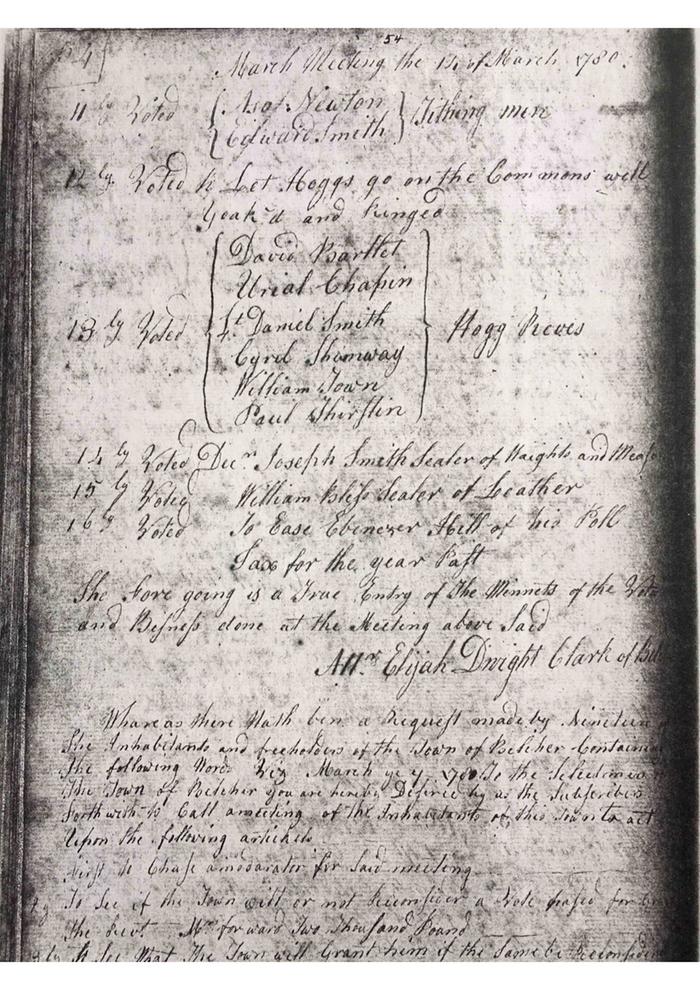 54
54
March Meeting the 14 of March 1780.
11 ly Voted Asa Newton
Edward Smith Tithing men
12 ly Voted to Let Hoggs go on the Commons well
Yoak'd and Ringed
David Bartlet
Urial Chapin
13 ly Voted Lt Daniel Smith Hogg Reeves
Cyril Shumway
William Town
Paul Thirstin
14 ly Voted Decn Joseph Smith Sealer of Waights and Meas
15 ly Voted William Bliss Sealer of Leather
16 ly Voted To Ease Ebenezer Hill of his Poll
Tax for the year Past
The Fore going is a True Entry of The Minnets of the Vote
and Besness done at the Meeting above Said
Attr Elijah Dwight Clark of Bel
Whareas there Hath ben a Request made by Nineteen of
The Inhabitants and freeholders of the Town of Belcher Containing
The following Words Viz March ye 1780 To the Selectmen of
The Town of Belcher you are hereby Desired by us the Subscribers
forthwith to Call a meeting of the Inhabitants of this Town to act
Upon the following articles
First to Chuse a moderator for Said meeting
To See if the Town will or not Reconsider a Vote passed for
the Revt Mr forward Two Thousand Pound
3 ly to See What The Town will Grant him if the Same be Reconsider